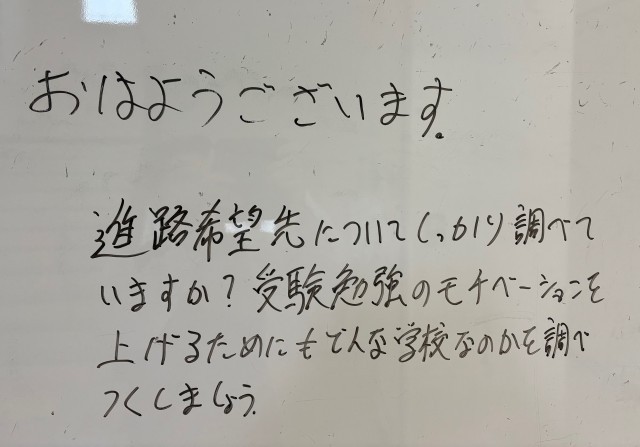 おはようございます。
進路希望先についてしっかり調べて
いますか?受験勉強のモチベーションを
上げるためにもどんな学校なのかを調べ
つくしましょう。